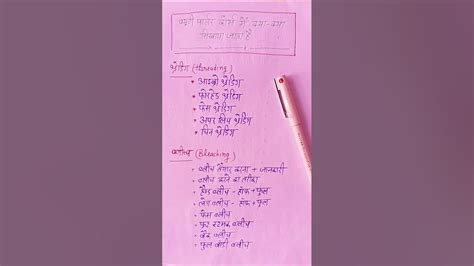 ब्यूटी पार्लर कोर्स में क्या-क्या
सिखाया जाता है
थ्रेडिंग (threading)
* आइब्रो थ्रेडिंग
* फोरहेड थ्रेडिंग
* फेस थ्रेडिंग
* अपर लिप थ्रेडिंग
* चिन थ्रेडिंग
ब्लीच (Bleaching)
• ब्लीच तैयार करना + जानकारी
• ब्लीच करने का तरीका
• हैण्ड ब्लीच - हाफ + फुल
• लेग ब्लीच - हाफ + फुल
• फेस ब्लीच
• ब्लीच
• बैक ब्लीच
• फुल बॉडी ब्लीच